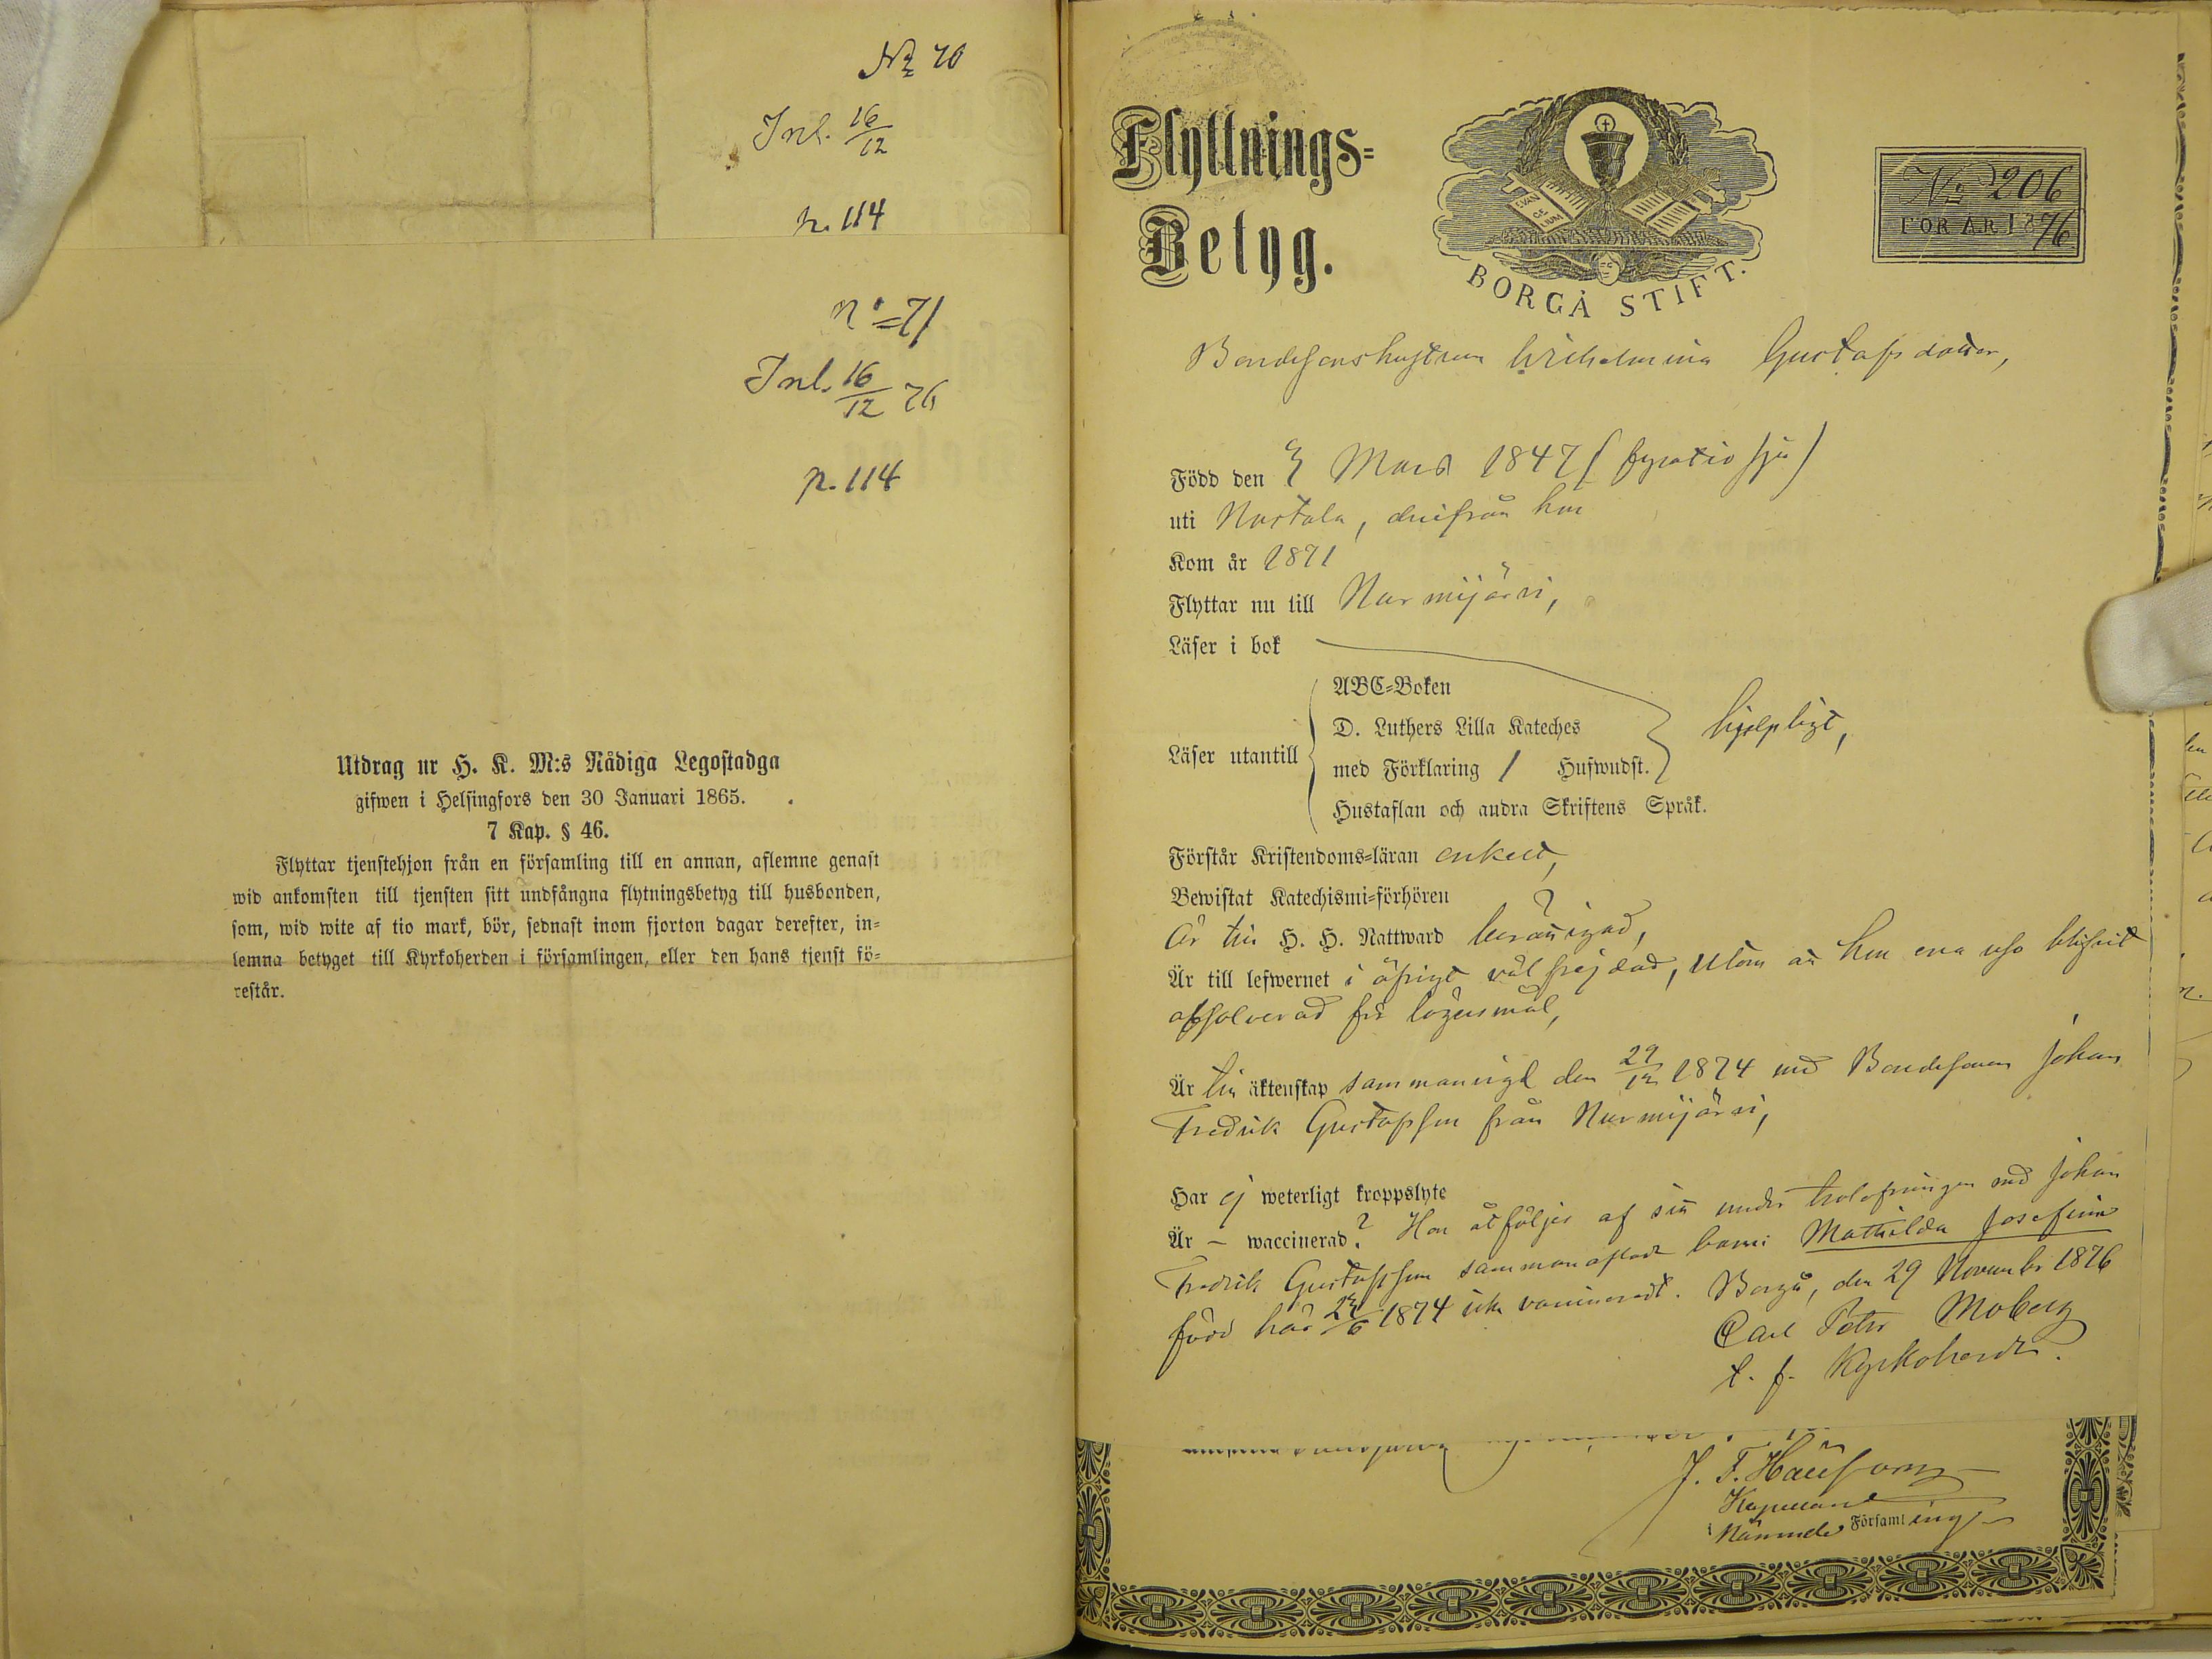 № 70
Inl. 16/12
p. 114
n:o 71
Inl. 16/12 76
p. 114
Utdrag ur H. K. M:s Nådiga Legostadga
gifwen i Helsingfors den 30 Januari 1865.
7 Kap. § 46.
Flyttar tjenstehjon från en församling till en annan, aflemne genast
wid ankomsten till tjensten sitt undfångna flytningsbetyg till husbonden,
som, wid wite af tio mark, bör, sednast inom fjorton dagar derefter, in=
lemna betyget till Kyrkoherden i församlingen, eller den hans tjenst fö=
restår.
Flyttnings=
Betyg.
EVAN
GE
LIUM
BORGÅ STIFT.
№ 206
FÖR ÅR 1876
Bondesonshustrun Wilhelmina Gustafsdotter,
Född den 3 Mars 1847 (fyratio sju)
uti Nastola, derifrån hon
Kom år 1871
Flyttar nu till Nurmijärvi,
Läser i bok
ABC=Boken
D. Luthers Lilla Kateches
Läser utantill
med Förklaring / Hufwudst.
hjelpligt,
Hustaflan och andra Skriftens Språk.
Förstår Kristendoms=läran enkelt,
Bewistat Katechismi=förhören ?
Är till H. H. Nattward berättigad,
Är till lefwernet i öfrigt väl frejdad, utom att hon ena resa blifvit
absolverad för lägersmål,
Är till äktenskap sammanvigd den 29/12 1874 med Bondesonen Johan
Fredrik Gustafsson från Nurmijärvi,
Har ej weterligt kroppslyte
Är — waccinerad? Hon åtföljes af sitt under trolofningen med Johan
Fredrik Gustafsson sammanaflade barn: Mathilda Josefina
född här 24/6 1874 icke vaccinerad. Borgå, den 29 November 1876
Carl Peter Moberg
t. f. Kyrkoherde.
J. F.
Kapellan
i Nämnde Församling